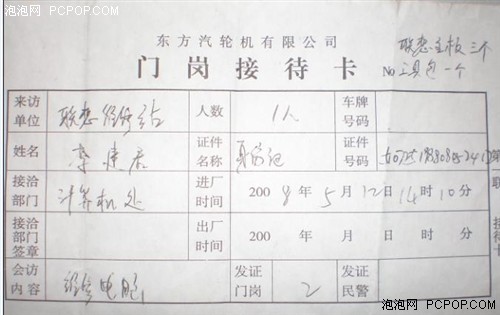 泡泡网 PCPOP.COM
东方汽轮机有限公司
门岗接待卡
联想主板三个
No 工具包一个
来访单位 联想维修站 人数 1人 车牌号码
姓名 李建君 证件名称 身份证 证件号码
接洽部门 计算机处 进厂时间 2008年5月12日14时10分
接洽部门签章 出厂时间 200 年 月 日 时 分
会访内容 维修电脑 发证门岗 2 发证民警
联
接待卡
泡泡网 PCPOP.COM 泡泡网 PCPOP.COM